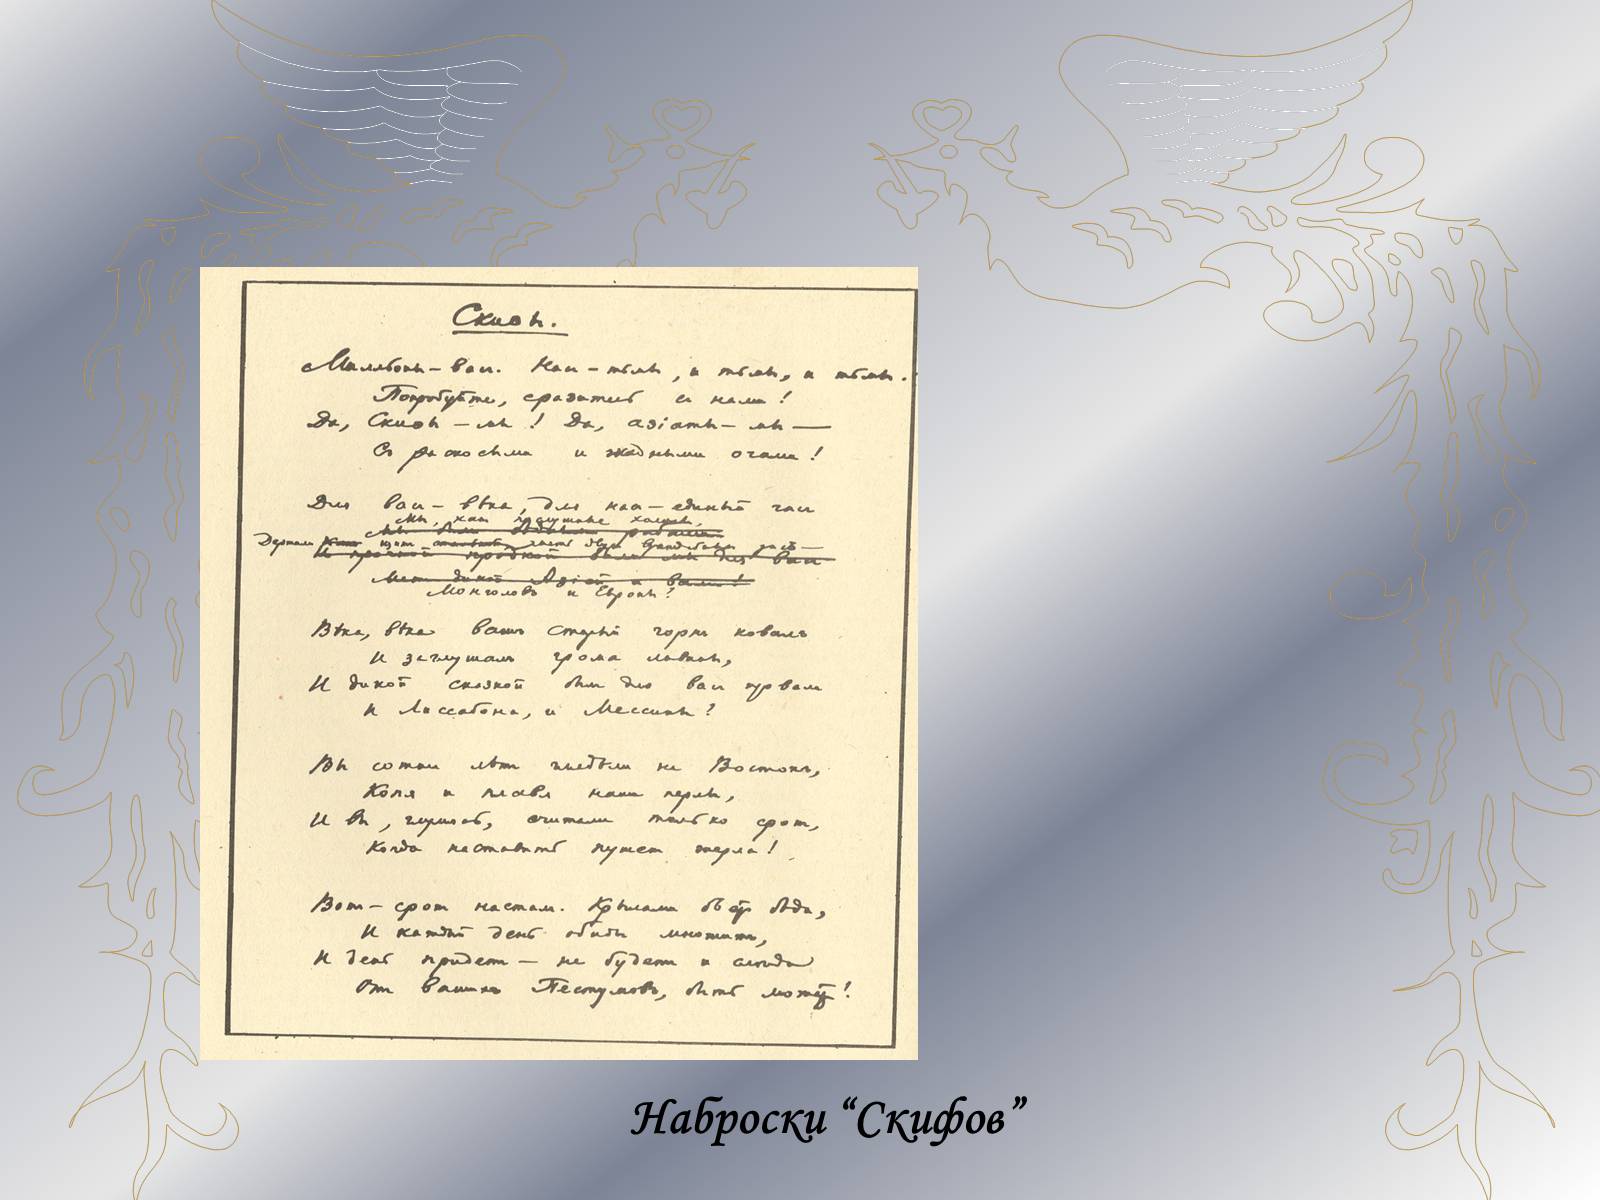 Скиѳы.
Милльоны – вас. Нас – тьмы, и тьмы, и тьмы.
Попробуйте, сразитесь с нами!
Да, Скиѳы – мы! Да, азіаты – мы —
Съ раскосыми и жадными очами!
Для вас – вѣка, для нас – единый час
Мы, как послушные холопы,
Мы были
Держали щит двух враждебных рас —
И преградой были мы для вас
Меж дикой Азіей и вами!
Монголовъ и Европы?
Вѣка, вѣка вашъ старый горнъ ковалъ
И заглушалъ грома лавины,
И дикой сказкой был для вас провал
И Лиссабона, и Мессины?
Вы сотни лѣт глядѣли на Востокъ,
Копя и плавя наши перлы,
И вы, глумясь, считали только срок,
Когда наставить пушек жерла!
Вот – срок настал. Крылами бьет бѣда,
И каждый день обиды множит,
И день придет – не будет и слѣда
От ваших Пестумовъ, быть может!
Наброски “Скифов”